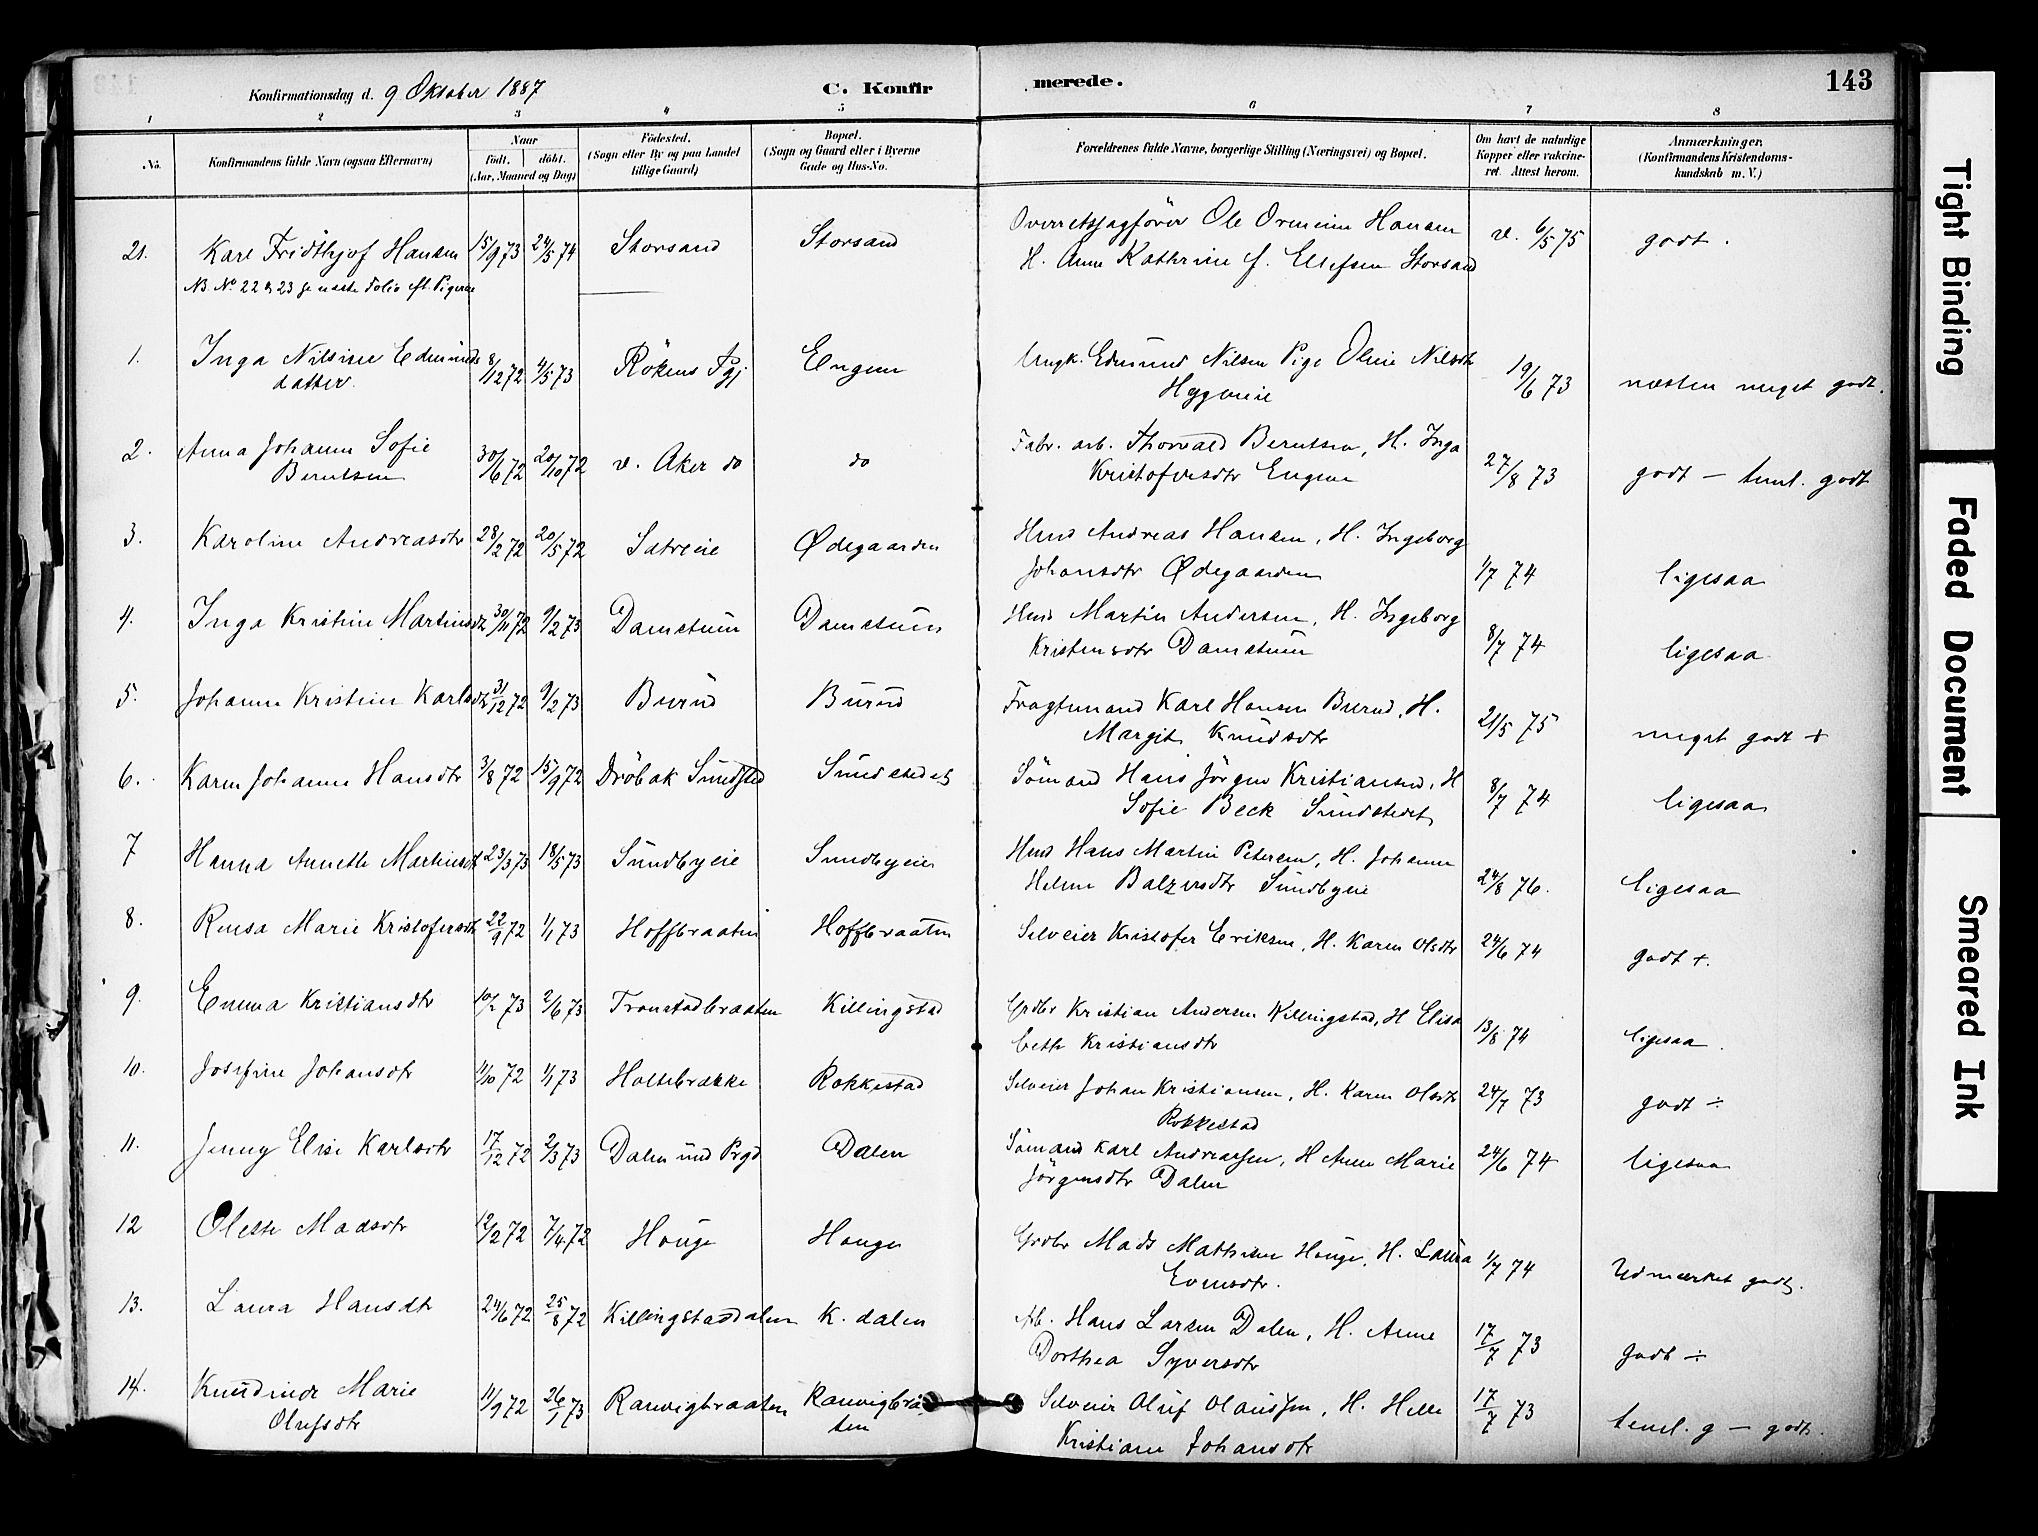 Konfirmationsdag d. 9 Oktober 1887 C. Konfir merede. 143
1 2 3 4 5 6 7 8
No. Konfirmandens fulde Navn (ogsaa Efternavn) Naar født. døbt. (Aar, Maaned og Dag) Fødested. (Sogn eller By og paa Landet tillige Gaard) Bopæl. (Sogn og Gaard eller i Byerne Gade og Hus-No. Forældrenes fulde Navne, borgerlige Stilling (Næringsvei) og Bopæl. Om havt de naturlige Kopper eller vakcineret. Attest herom. Anmærkninger. (Konfirmandens Kristendomskundskab m. V.)
21. Karl Fridthjof Hansen 15/9 73 24/5 74 Storsand Storsand Overretssagfører Ole Hansen v. 6/5 75 godt.
H. Anne Kathrine f. Ellefsen Storsand
NB. No 22 & 23 se næste Folio eft. Pigerne
1. Inga Nilsine Edmunds 8/12 72 4/5 73 Røkens Pgj Engene Ungk. Edmund Nilsen Pige Oline Nilsdtr 19/6 73 næsten meget godt.
datter. Hyggeneie
2. Anna Johanne Sofie 30/6 72 20/10 72 v. Aker do do Fabr. arb. Thorvald Berntsen, H. Inga 27/8 73 godt — teml. godt
Berntsen Kristofersdtr Engene
3. Karoline Andreasdtr 28/2 72 20/5 72 Sætreeie Ødegaarden Hmd Andreas Hansen, H. Ingeborg
Johansdtr Ødegaarden 1/7 74 ligesaa
4. Inga Kristine Martinsdtr 30/11 72 9/2 73 Damstuen Damstuen Hmd Martin Andersen, H. Ingeborg
Kristensdtr Damstuen 8/7 74 ligesaa
5. Johanne Kristine Karlsdtr 31/12 72 9/2 73 Burud Burud Fragtemand Karl Hansen Burud, H.
Margit Knudsdtr 21/5 75 meget godt +
6. Karen Johanne Hansdtr 3/8 72 15/9 72 Drøbak Sundsted Sundstedet Sømand Hans Jørgen Kristiansen, H
Sofie Beck Sundstedet 8/7 74 ligesaa
7 Hanna Annette Martinsdtr 23/3 73 18/5 73 Sundbyeie Sundbyeie Hmd Hans Martin Petersen, H. Johanne
Helene Balzersdtr Sundbyeie 24/8 76. ligesaa
8. Rensa Marie Kristofersdtr 22/9 72 1/1 73 Hoffbraaten Hoffbraaten Selveier Kristofer Eriksen, H. Karen Olsdtr 24/6 74 godt +.
9. Emma Kristiansdtr 10/2 73 2/6 73 Tronstadbraaten Killingstad Grdbr Kristian Andersen Killingstad, H Elisa
beth Kristiansdtr 13/8 74 ligesaa.
10. Josefine Johansdtr 11/10 72 1/1 73 Holtebrække Rokkestad Selveier Johan Kristiansen, H. Karen Olsdtr 24/7 73 godt ÷
Rokkestad
11. Jenny Elise Karlsdtr 17/12 72 2/3 73 Dalen und Prgd Dalen Sømand Karl Andreassen, H Anne Marie 24/6 74 ligesaa
Jørgensdtr Dalen
12 Olette Madsdtr 12/2 72 7/4 72 Houge Houge Grdbr Mads Mathisen Houge, H. Laura 1/7 74 Udmærket godt.
Evensdtr.
13. Laura Hansdtr 24/6 72 25/8 72 Killingstaddalen K. dalen Arb. Hans Larsen Dalen, H. Anne 17/7 73 godt ÷
Dorthea Syversdtr
14. Knudine Marie 11/9 72 26/1 73 Ramvigbraaten Ramvigbraa Selveier Oluf Olaussen, H. Helle 17/7 73 teml. g — godt.
Olufsdtr ten Kristiane Johansdtr
Tight Binding
Faded Document
Smeared Ink